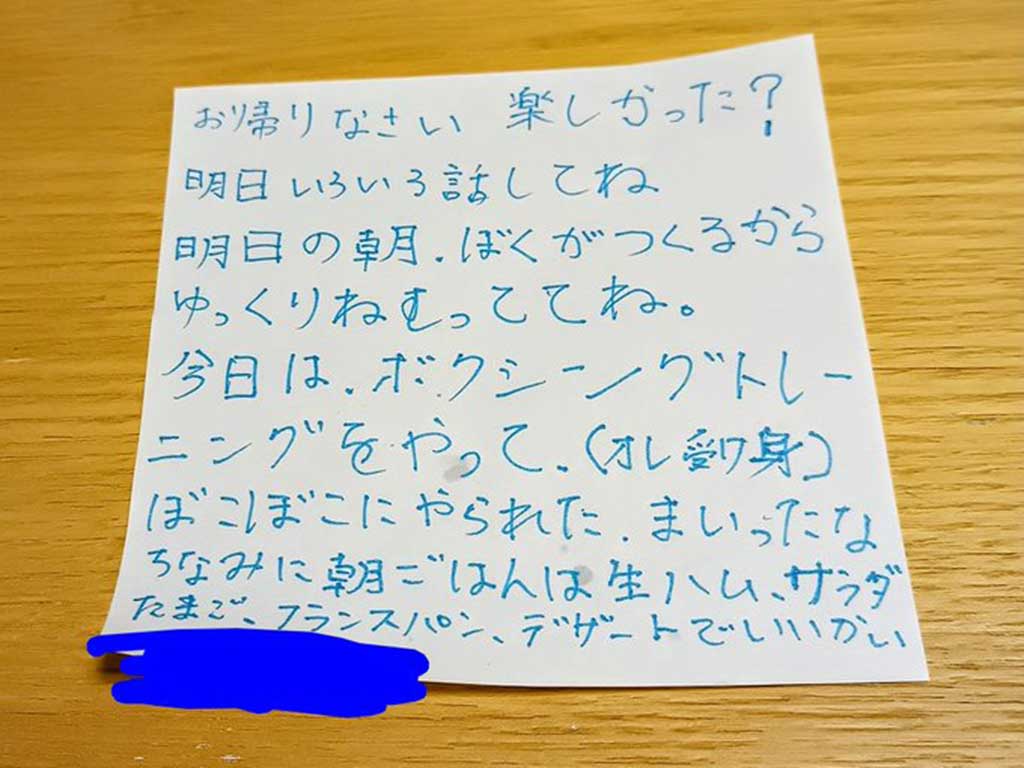 お帰りなさい 楽しかった?
明日いろいろ話してね
明日の朝.ぼくがつくるから
ゆっくりねむっててね。
今日は.ボクシーングトレー
ニングをやって.(オレ受け身)
ぼこぼこにやられた.まいったな
ちなみに朝ごはんは生ハム、サラダ
たまご、フランスパン、デザートでいいかい